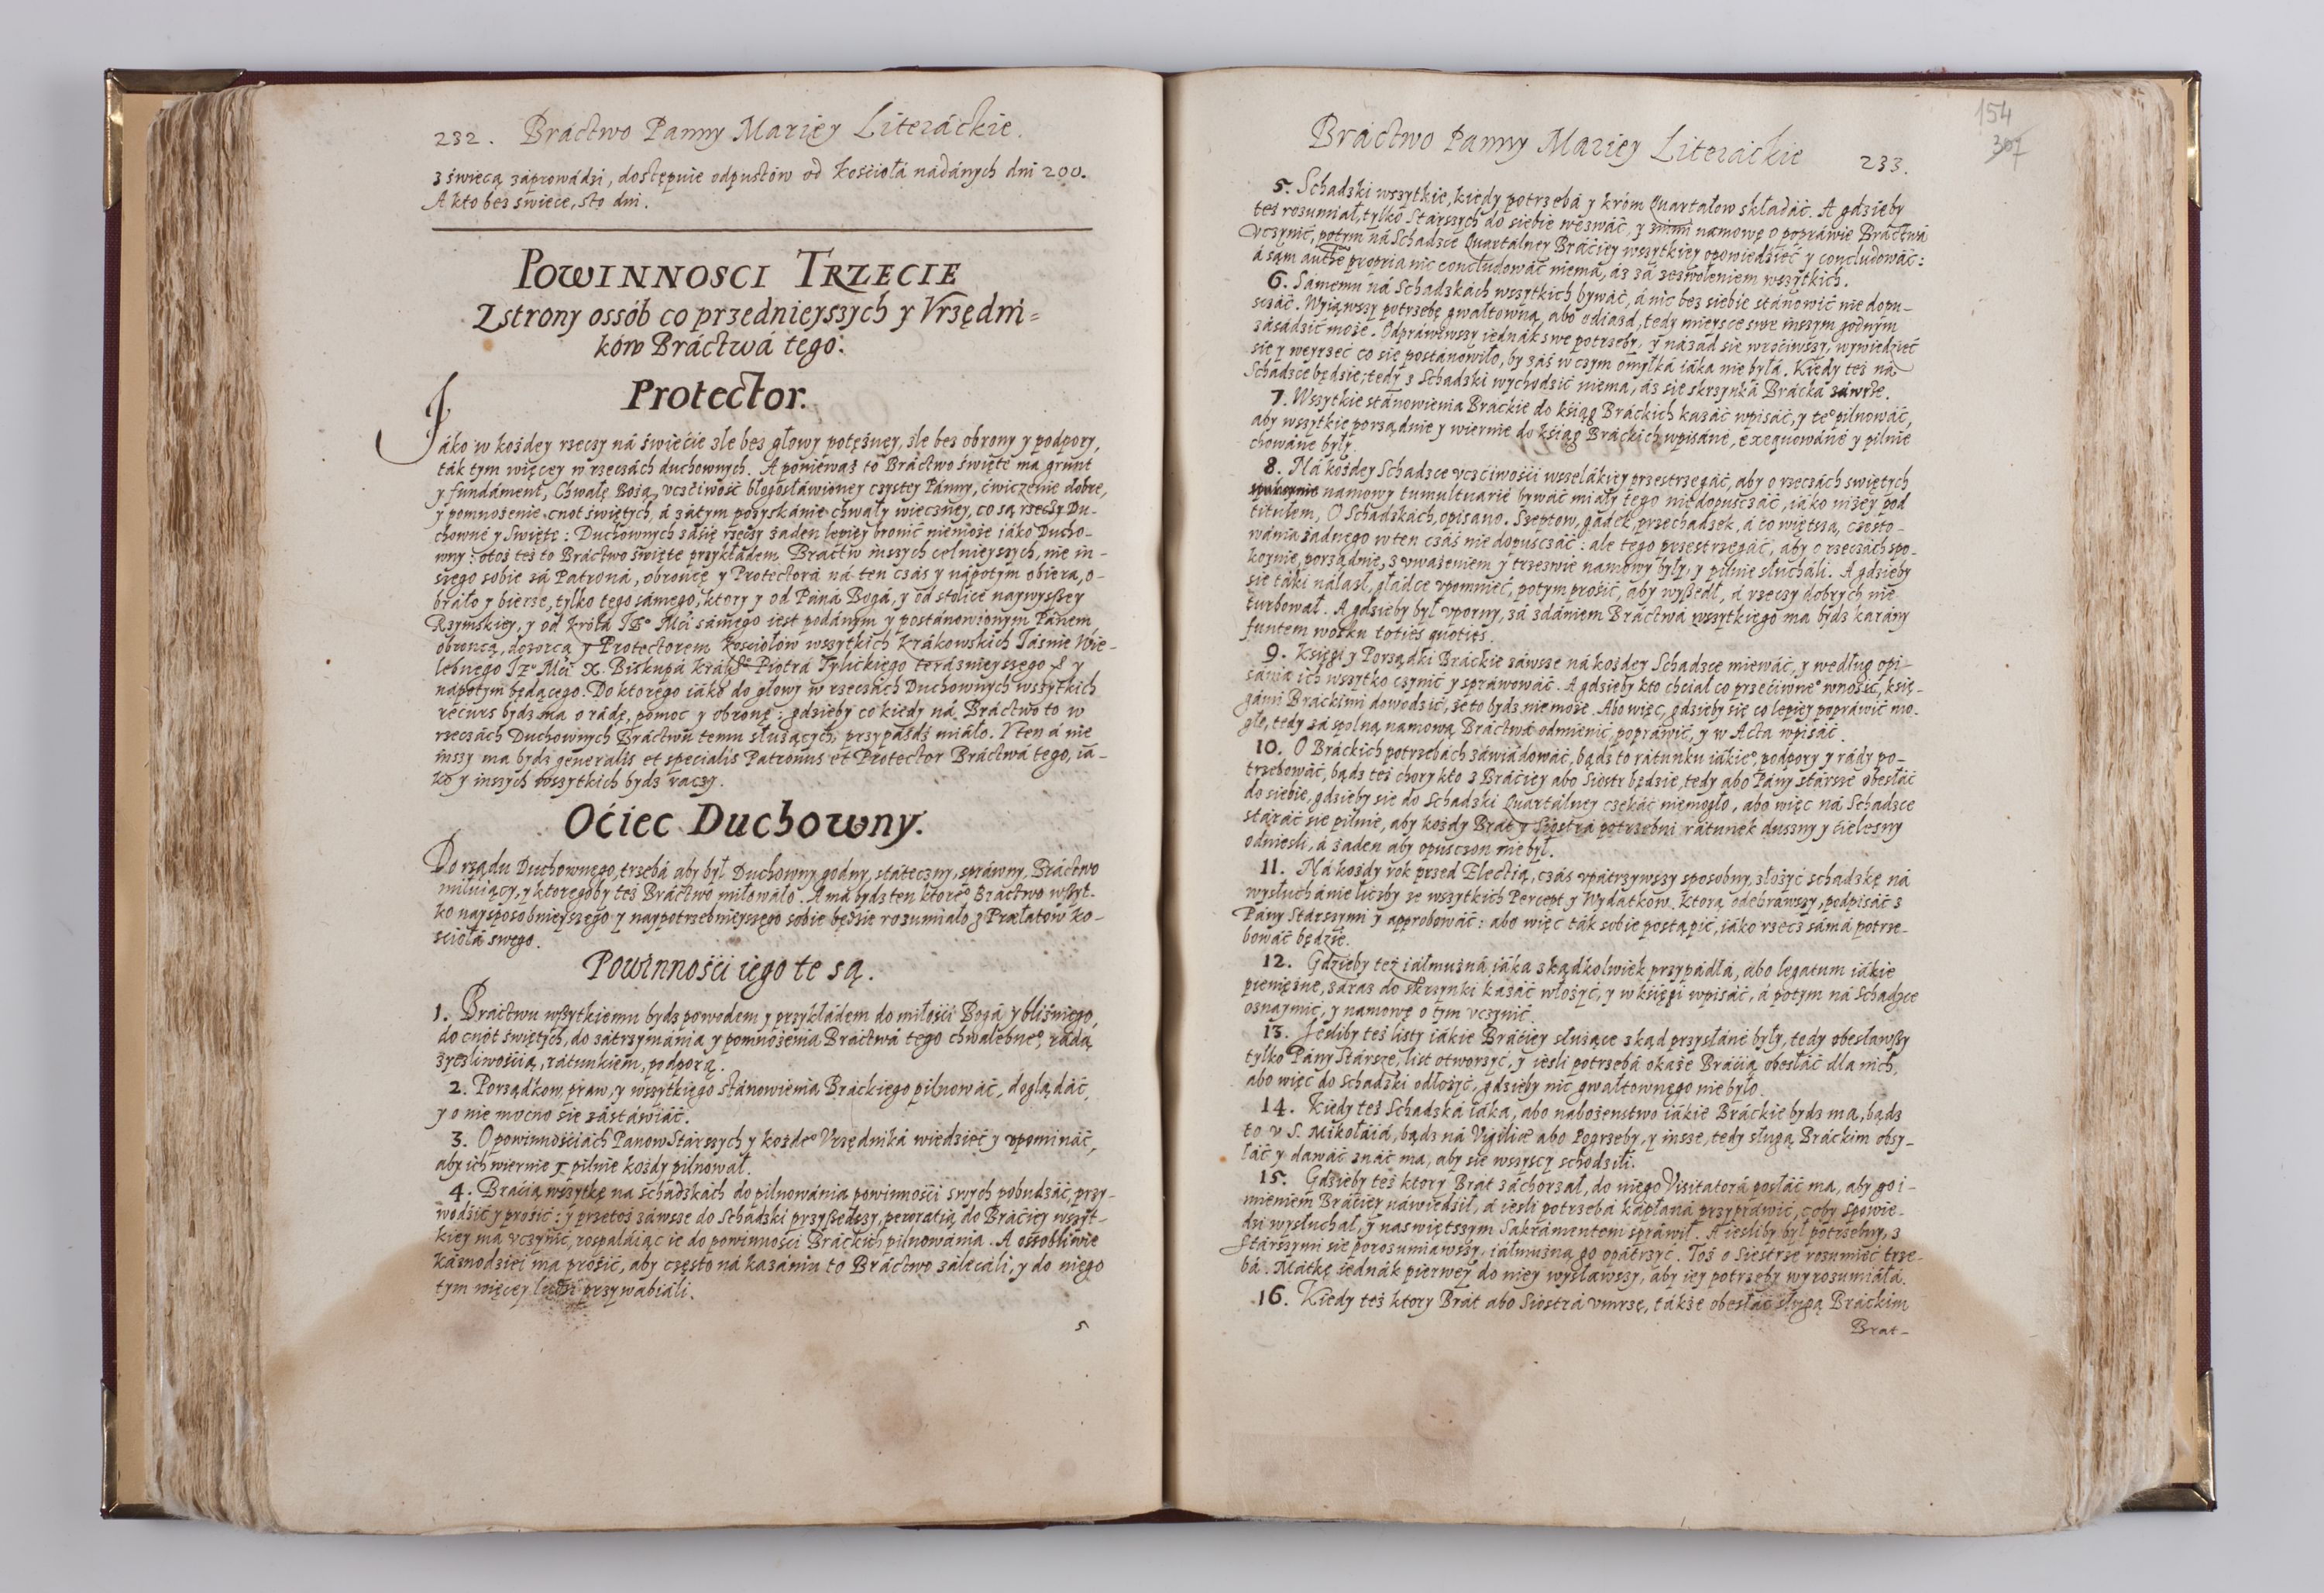 232. Bráctwo Panny Mariey Literáckie.
z świecą záprowádzi, dostępuie odpustów od Kościołá nádánych dni 200.
A kto bez świece, sto dni.
POWINNOSCI TRZECIE
Z strony ossób co przednieyszych y Vrzędni=
ków Bráctwá tego:
Protector.
Jáko w kożdey rzeczy ná świećie źle bez głowy potężney, źle bez obrony y podpory,
ták tym więcey w rzeczách duchownych. A ponieważ to Bráctwo święte ma grunt
y fundáment, Chwałę Bożą, vczciwość błogosłáwioney czystey Pánny, ćwiczenie dobre,
y pomnożenie cnot świętych, á zátym pozyskánie chwały wieczney, co są rzeczy Du-
chowne y Swięte: Duchownych záśię rzeczy żaden lepiey bronić niemoże iáko Ducho-
wny: otoż też to Bráctwo święte przykłádem Bráctw inszych celnieyszych, nie in-
szego sobie zá Patroná, obrońcę y Protectorá ná ten czás y nápotym obiera, o-
bráło y bierze, tylko tego sámego, ktory y od Páná Bogá, y od stolice naywyższey
Rzymskiey, y od Krolá Jº Mći sámego iest podánym y postánowionym Pánem,
obrońcą, dozorcą y Protectorem Kościołów wszytkich Krákowskich Jáśnie Wie-
lebnego Jº Mći X. Biskupá Krákº Piotrá Tylickiego teráznieyszego & y
nápotym będącego. Do ktorego iáko do głowy w rzeczách Duchownych wszytkich
recurs bydz ma o rádę, pomoc y obronę: gdzieby co kiedy ná Bráctwo to w
rzeczách Duchownych Bráctwu temu służących, przypádź miáło. I ten á nie
inszy ma bydz generalis et specialis Patronus et Protector Bráctwá tego, iá-
ko y inszych wszytkich bydz raczy.
Oćiec Duchowny.
Do rządu Duchownego, trzebá aby był Duchowny godny, státeczny, spráwny, Bráctwo
miłuiący, y ktoregoby też Bráctwo miłowáło. A má bydz ten ktoreº Bráctwo wszyt-
ko naysposobnieyszego y naypotrzebnieyszego sobie będzie rozumiáło z Præłatów Ko-
ściołá swego.
Powinnośći iego te są.
1. Bráctwu wszytkiemu bydz powodem y przykłádem do miłośći Bogá y bliźniego,
do cnót świętych, do zátrzymánia y pomnożenia Bráctwá tego chwalebneº, rádą
życzliwośćią, rátunkiem, podporą.
2. Porządkow, praw, y wszytkiego stánowienia Bráckiego pilnowáć, doglądáć,
y o nie mocno się zástáwiáć.
3. O powinnośćiách Panow Stárszych y każdeº Vrzędniká wiedzieć y vpomináć,
aby ich wiernie y pilnie kożdy pilnował.
4. Bráćią wszytkę na schadzkách do pilnowánia powinnośći swych pobudzáć, przy-
wodzić y prośić: y przetoż záwsze do Schadzki przyszedszy, peroratią do Bráćiey wszyt-
kiey ma vczynić, rospaláiąc ie do powinnośći Bráckich pilnowánia. A ossobliwie
káznodziei ma prośić, aby często ná kazániu to Bráctwo zálecáli, y do niego
tym więcey ludzi przywabiáli.
5
Bráctwo Panny Mariey Literáckie 233.
154
307
5. Schadzki wszytkie, kiedy potrzebá y króm Quartałow składáć. A gdzieby
też rozumiał, tylko Stárszych do siebie wezwáć, y z nimi namowę o popráwie Bráctwá
vczynić, potym ná Schadzce Quartálney Bráćiey wszytkiey opowiedzieć y concludowáć:
á sam authe propria nic concludowáć niema, áz zá zezwoleniem wszytkich.
6. Sámemu ná Schadzkách wszytkich bywáć, á nic bez siebie stánowić nie dopu-
szczáć. Wyiąwszy potrzebę gwałtowną, abo odiazd, tedy mieysce swe inszym godnym
zásádzić może. Odpráwiwszy iednák swe potrzeby, y názad się wróćiwszy, wywiedzieć
się y weyrzeć co się postánowiło, by záś w czym omyłká iáka nie byłá. Kiedy też ná
Schadzce będzie, tedy z Schadzki wychodzić niema, áz się skrzynká Brácka záwrze.
7. Wszytkie stánowienia Bráckie do ksiąg Bráckich kazáć wpisáć, y teº pilnowáć,
aby wszytkie porządnie y wiernie do ksiąg Bráckich wpisáne, exequowáne y pilnie
chowáne były.
8. Ná kożdey Schadzce vczćiwośći wszelákiey przestrzegáć, aby o rzeczách świętych
namowy tumultuarie bywáć miáły tego niedopuszczáć, iáko niżey pod
titułem, O Schadzkách, opisano. Szeptow, gadek, przechadzek, á co więtsza, często-
wánia żadnego w ten czás nie dopuszczáć: ale tego przestrzegáć, aby o rzeczách spo-
koynie, porządnie, z vważeniem y trzeźwie namowy były, y pilnie słucháli. A gdzieby
się táki nálazł, głádce vpomnieć, potym prośić, aby wyszedł, á rzeczy dobrych nie
turbował. A gdzieby był vporny, zá zdániem Bráctwá wszytkiego ma bydz karány
funtem wosku toties quoties.
9. Księgi y Porządki Bráckie záwsze ná kożdey Schadzce miewáć, y według opi-
sánia ich wszytko czynić y spráwowáć. A gdzieby kto chćiał co przećiwneº wnośić, księ-
gámi Bráckimi dowodzić, że to bydz niemoże. Abo więc, gdzieby się co lepiey popráwić mo-
gło, tedy zá spolną namową Bráctwá odmienić, popráwić, y w Acta wpisáć.
10. O Bráckich potrzebách záwiádowáć, bądź to rátunku iákieº, podpory y rády po-
trzebowáć, bądź też chory kto z Bráćiey abo Siostr będzie, tedy abo Pány stársze obesłáć
do siebie, gdzieby się do Schadzki Quartálney czekáć niemogło, abo więc ná Schadzce
stáráć się pilnie, aby kożdy Brát y Siostrá potrzebni rátunek duszny y ćielesny
odnieśli, á żaden aby opuszczon nie był.
11. Ná kożdy rok przed Electią, czás vpátrzywszy sposobny, złożyć schadzkę ná
wysłuchánie liczby ze wszytkich Percept y Wydátków. Ktorą odebráwszy, podpisáć z
Pány Stárszymi y approbowáć: abo więc ták sobie postąpić, iáko rzecz sámá potrze-
bowáć będzie.
12. Gdzieby też iáłmużná iáka zkądkolwiek przypádłá, abo legatum iákie
pieniężne, záraz do skrzynki kazáć włożyć, y w księgi wpisáć, á potym ná Schadzce
oznaymić, y namowę o tym vczynić.
13. Jesliby też listy iákie Bráćiey służące zkąd przysłáne były, tedy obesławszy
tylko Pány Stársze, list otworzyć, y iesli potrzebá okaże Bráćią obesłáć dla nich,
abo więc do Schadzki odłożyć, gdzieby nic gwałtownego nie było.
14. Kiedy też Schadzká iáka, abo nabożenstwo iákie Bráckie bydz ma, bądź
to v S. Mikołáiá, bądź ná Vigiliæ abo Pogrzeby, y insze, tedy sługą Bráckim obsy-
łáć y dawáć znáć ma, aby się wszyscy schodzili.
15. Gdzieby też ktory Brát záchorzał, do niego Visitatorá posłáć ma, aby go i-
mieniem Bráćiey náwiedził, á iesli potrzebá kápłaná przypráwić, coby spowie-
dzi wysłuchał, y naświętszym Sakrámentem spráwił. A iesliby był potrzebny, z
Stárszymi się porozumiawszy, iáłmużną go opátrzyć. Toż o Siestrze rozumieć trze-
bá. Mátkę iednák pierwey do niey wysławszy, aby iey potrzeby wyrozumiáłá.
16. Kiedy też ktory Brát abo Siostrá vmrze, tákże obesłáć sługą Bráckim
Brat-